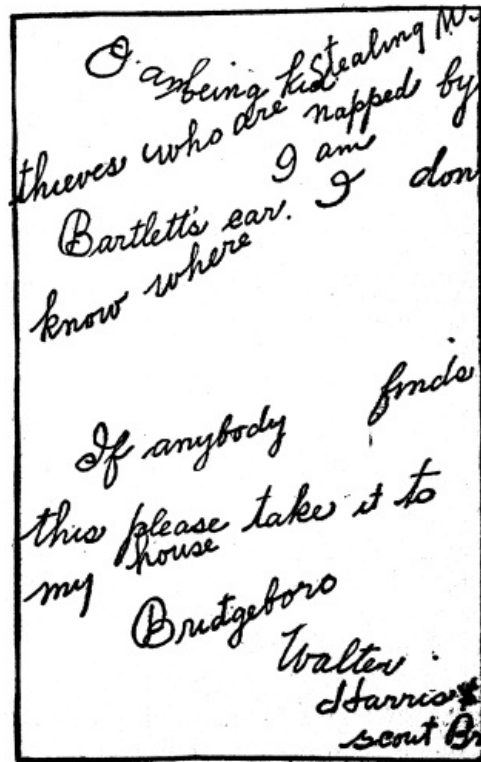 I am being kid Stealing M.
thieves who are napped by
I am
Bartlett's car. I don
know where
If anybody finds
this please take it to
my house
Bridgeboro
Walter
Harris
scout Br